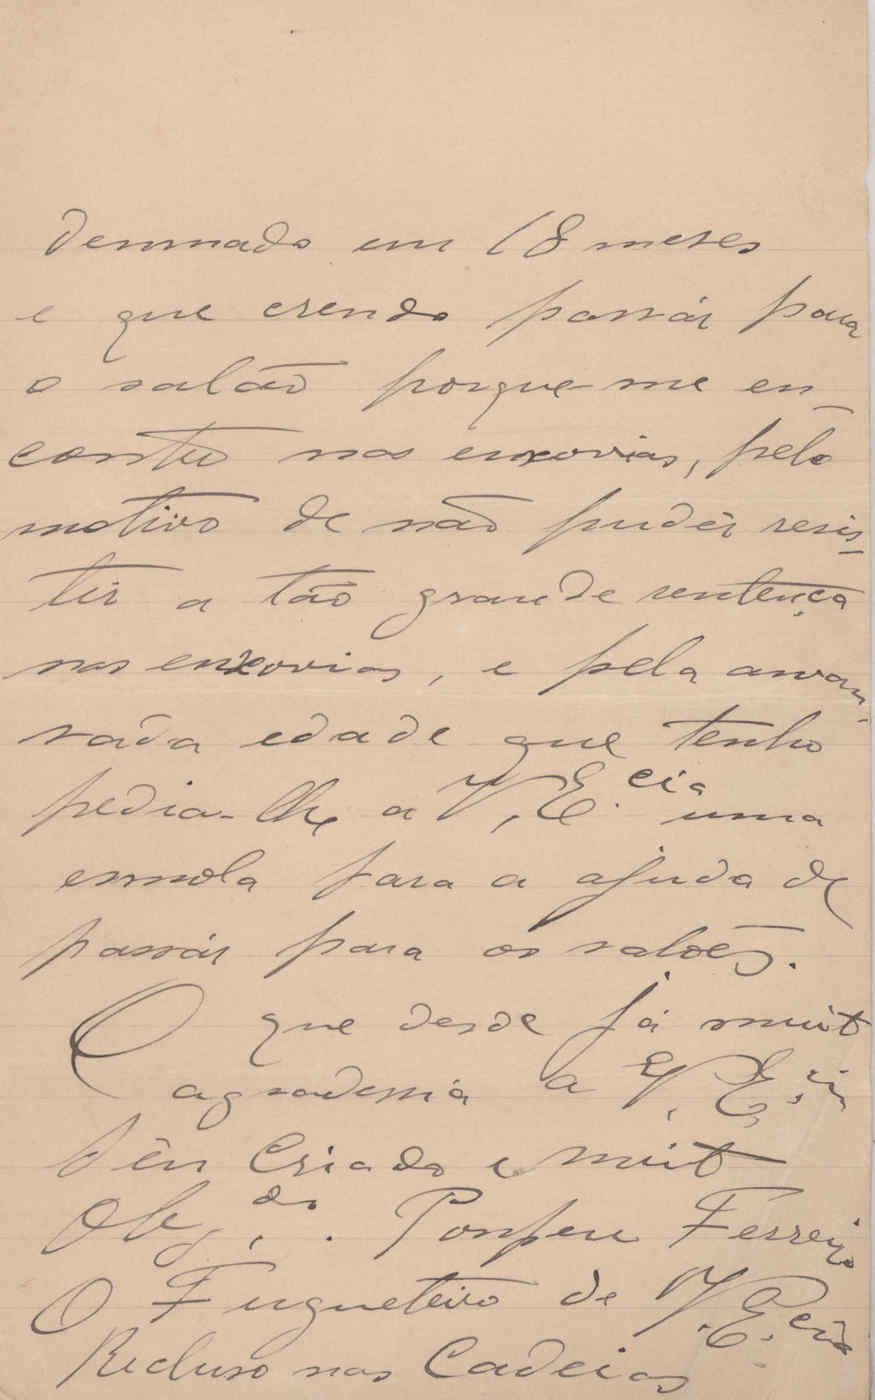 demnado em 18 meses
e que crendo passár para
o salão porque-me en-
contro nas enxovias, pelo
motivo de não pudêr resis-
tir a tão grande sentença
nas enxovias, e pela avan-
sada edade que tenho
pedia-lhe a V. E.cia uma
esmola para a ajuda de
passár para os salões.
O que desde já muito
agradessia a V. E.cia
Sêu Criado e muito
Obg.do. Pompeu Ferreira
O Fugueteiro de V. E.cia
Recluso nas Cadeias